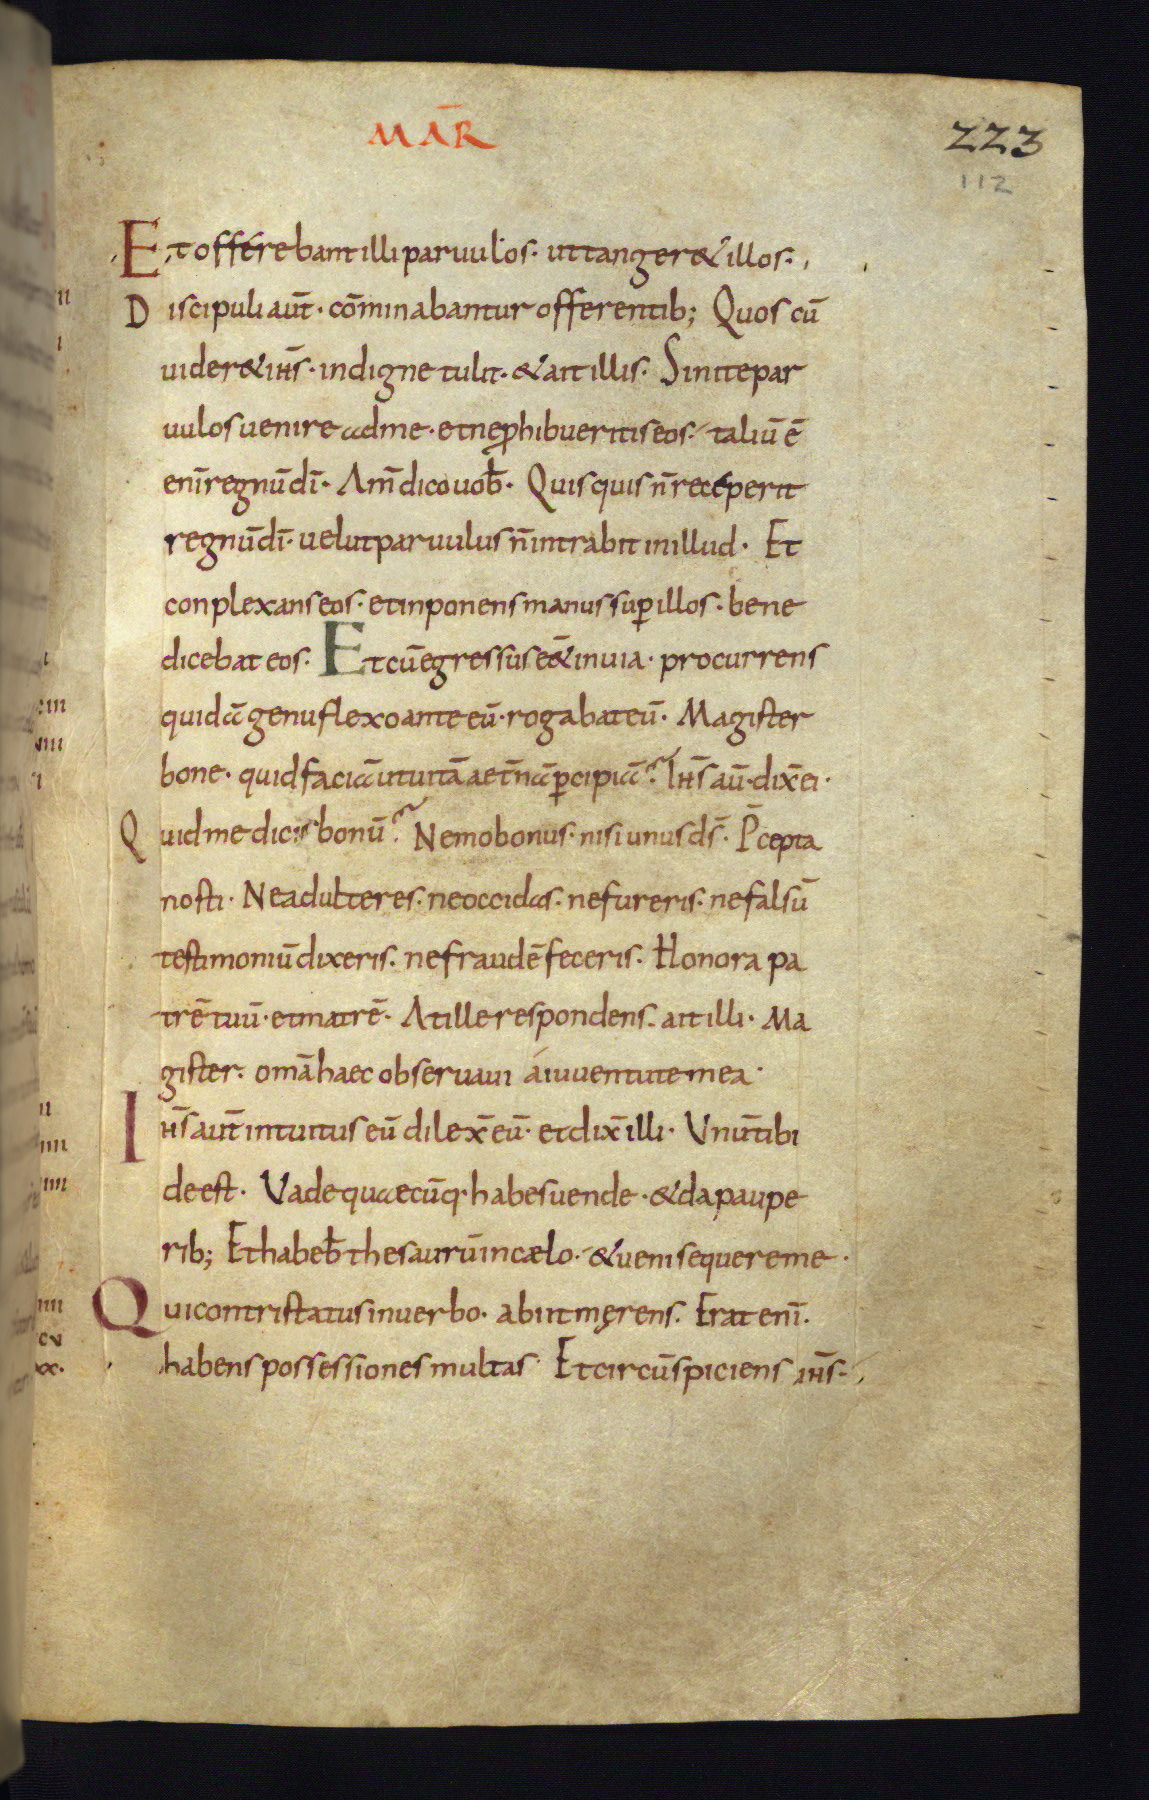 MAR̄
223
112
Et offerebant illi paruulos· ut tanger& illos·
Discipuli aut̄· cōminabantur offerentib; Quos cū
uider& ih̄s· indigne tulit· & ait illis· Sinite par
uulos uenire ad me· et ne ꝓhibueritis eos· taliū ē
eni̅ regnū di̅· Am̄ dico uob̄· Quisquis n̄ receperit
regnū di̅· uelut paruulus n̄ intrabit in illud· Et
conplexans eos· et inponens manus suꝑ illos· bene
dicebat eos· Et cū egressus eē& in uia· procurrens
quidā genu flexo ante eū· rogabat eū· Magister
bone· quid faciā ut uitā aet̄nā ꝑcipiā? Ih̄s aū· dix̄ ei·
Quid me dicis bonū? Nemo bonus· nisi unus ds̄· P̄cepta
nosti· Ne adulteres· ne occidas· ne fureris· ne falsū
testimoniū dixeris· ne fraudē feceris· Honora pa
trē tuū· et matrē· At ille respondens· ait illi· Ma
gister· om̄a haec obseruaui a iuuentute mea·
Ih̄s aut̄ intuitus eū dilex̄ eū· et dix̄ illi· Vnū tibi
deest· Vade quaecūq· habes uende· & da paupe
rib; Et habeb̄ thesaurū in cælo· & ueni sequere me·
Qui contristatus in uerbo· abiit męrens· Erat eni̅·
habens possessiones multas· Et circūspiciens ih̄s·